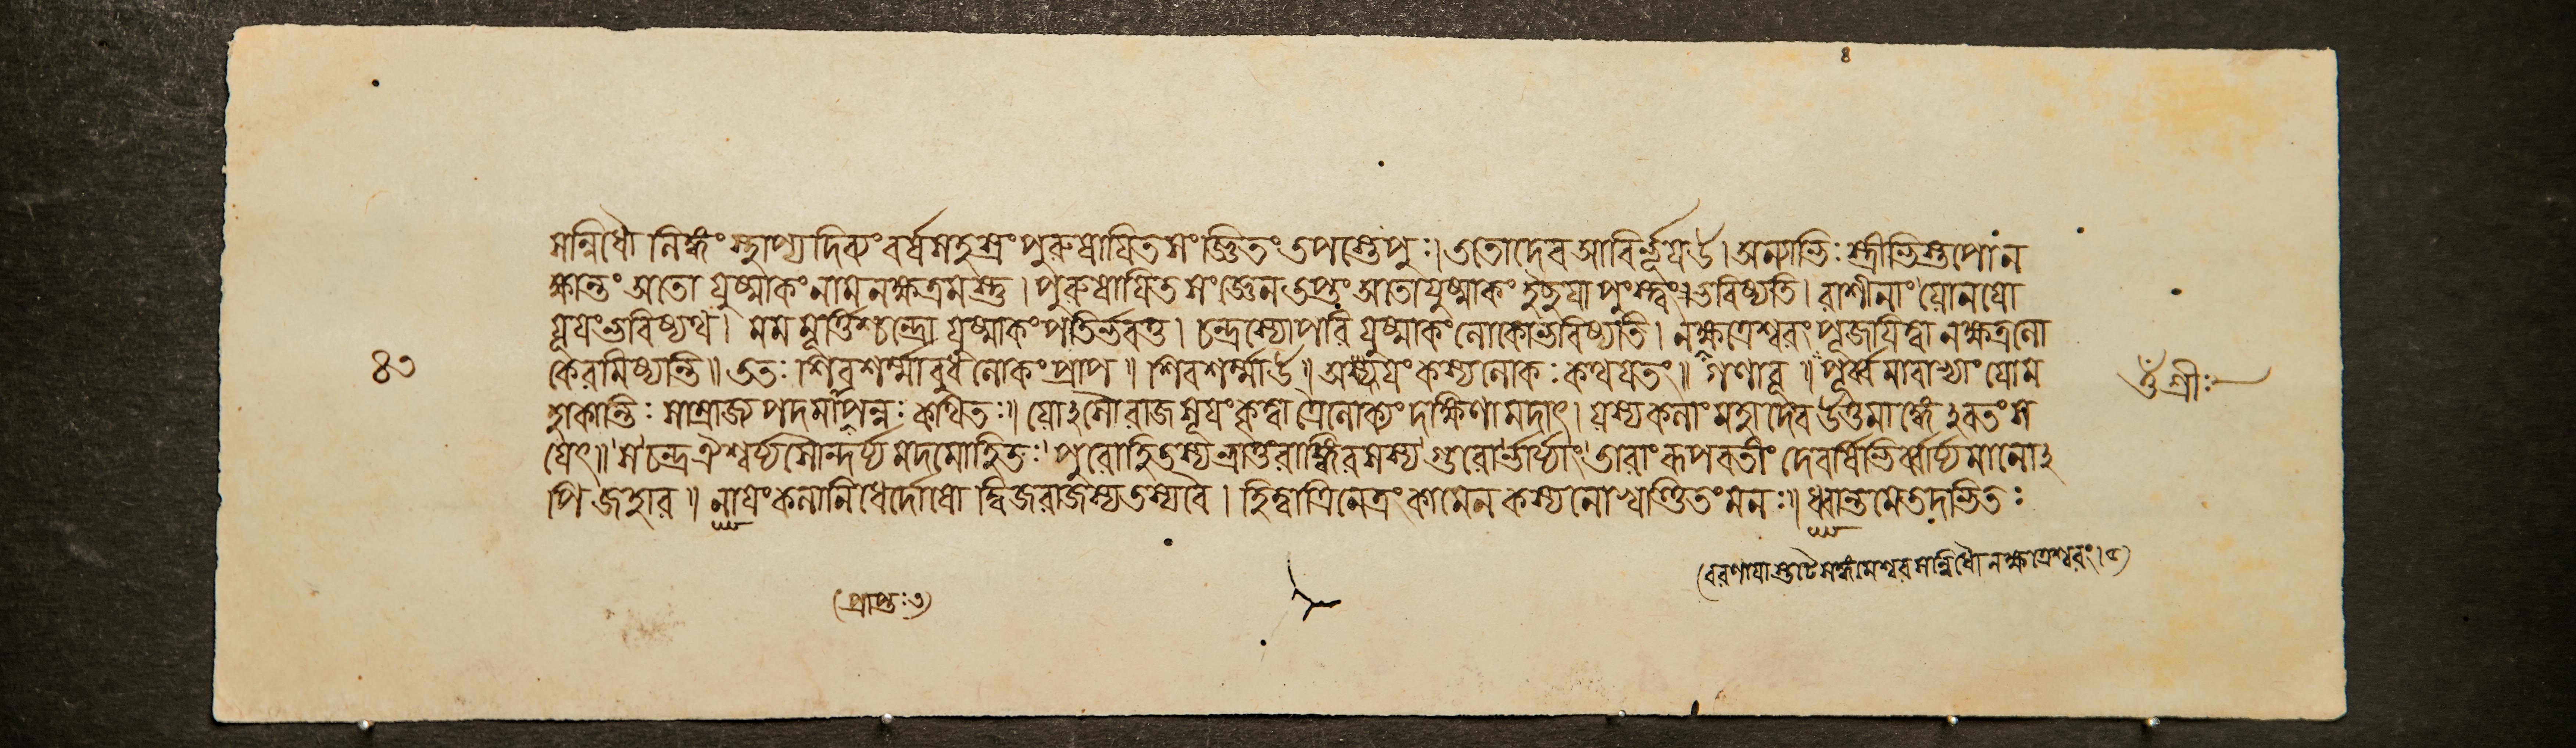 ৪
সন্নিধৌ লিঙ্গং স্থাপ্য দিব্যং বর্ষসহস্রং পুরুষায়িতসংজ্ঞিতং তপস্তেপুঃ। ততোদেব আবির্ভূয়উ। অন্যাভিঃ স্ত্রীভিস্তপোন
ক্ষান্তং অতো যুষ্মাকং নাম নক্ষত্রমস্তু। পুরুষায়িতসংজ্ঞেন তপ্তং অতোযুষ্মাকং ইচ্ছয়া পুংস্ত্বং ভবিষ্যতি। রাশীনাং যোনয়ো
যূয়ংভবিষ্যথ। মম মূর্ত্তিশ্চন্দ্রো যুষ্মাকংপতির্ভবতু। চন্দ্রস্যোপরি যুষ্মাকংলোকোভবিষ্যতি। নক্ষত্রেশ্বরং পূজয়িত্বা নক্ষত্রলো
৪৭ কেরমিষ্যন্তি॥ ততঃ শিবশর্ম্মাবুধলোকংপ্রাপ॥ শিবশর্ম্মাউ॥ কস্যলোকঃ কথয়েতং॥ গণাবূ॥ পূর্ব্বমাবাভ্যাং যোম ওঁশ্রীঃ
হাকান্তিঃ সাম্রাজ্যপদমাপন্নঃ কথিতঃ॥ যোঽসৌরাজসূয়ং কৃত্বা ত্রৈলোক্যং দক্ষিণামদাৎ। যস্যকলাং মহাদেব উত্তমাঙ্গেঽবতংস
য়েৎ॥ সচন্দ্র ঐশ্বর্য্যসৌন্দর্য্যমদমোহিতঃ পুরোহিতস্যভ্রাতুরাঙ্গিরসস্য গুরোর্ভার্য্যাং তারাং রূপবতীং দেবর্ষিভির্ব্বার্য্যমানোঽ
পি জহার॥ নায়ং কলানিধের্দোষো দ্বিজরাজস্যতস্যবৈ। হিত্বাত্রিনেত্রং কামেন কস্যনোখণ্ডিতংমনঃ॥ ধ্বান্তমেতদভিতঃ
(বরণায়াস্তটেসঙ্গমেশ্বরসন্নিধৌনক্ষত্রেশ্বরং।১)
(প্রাপ্তঃ৭)